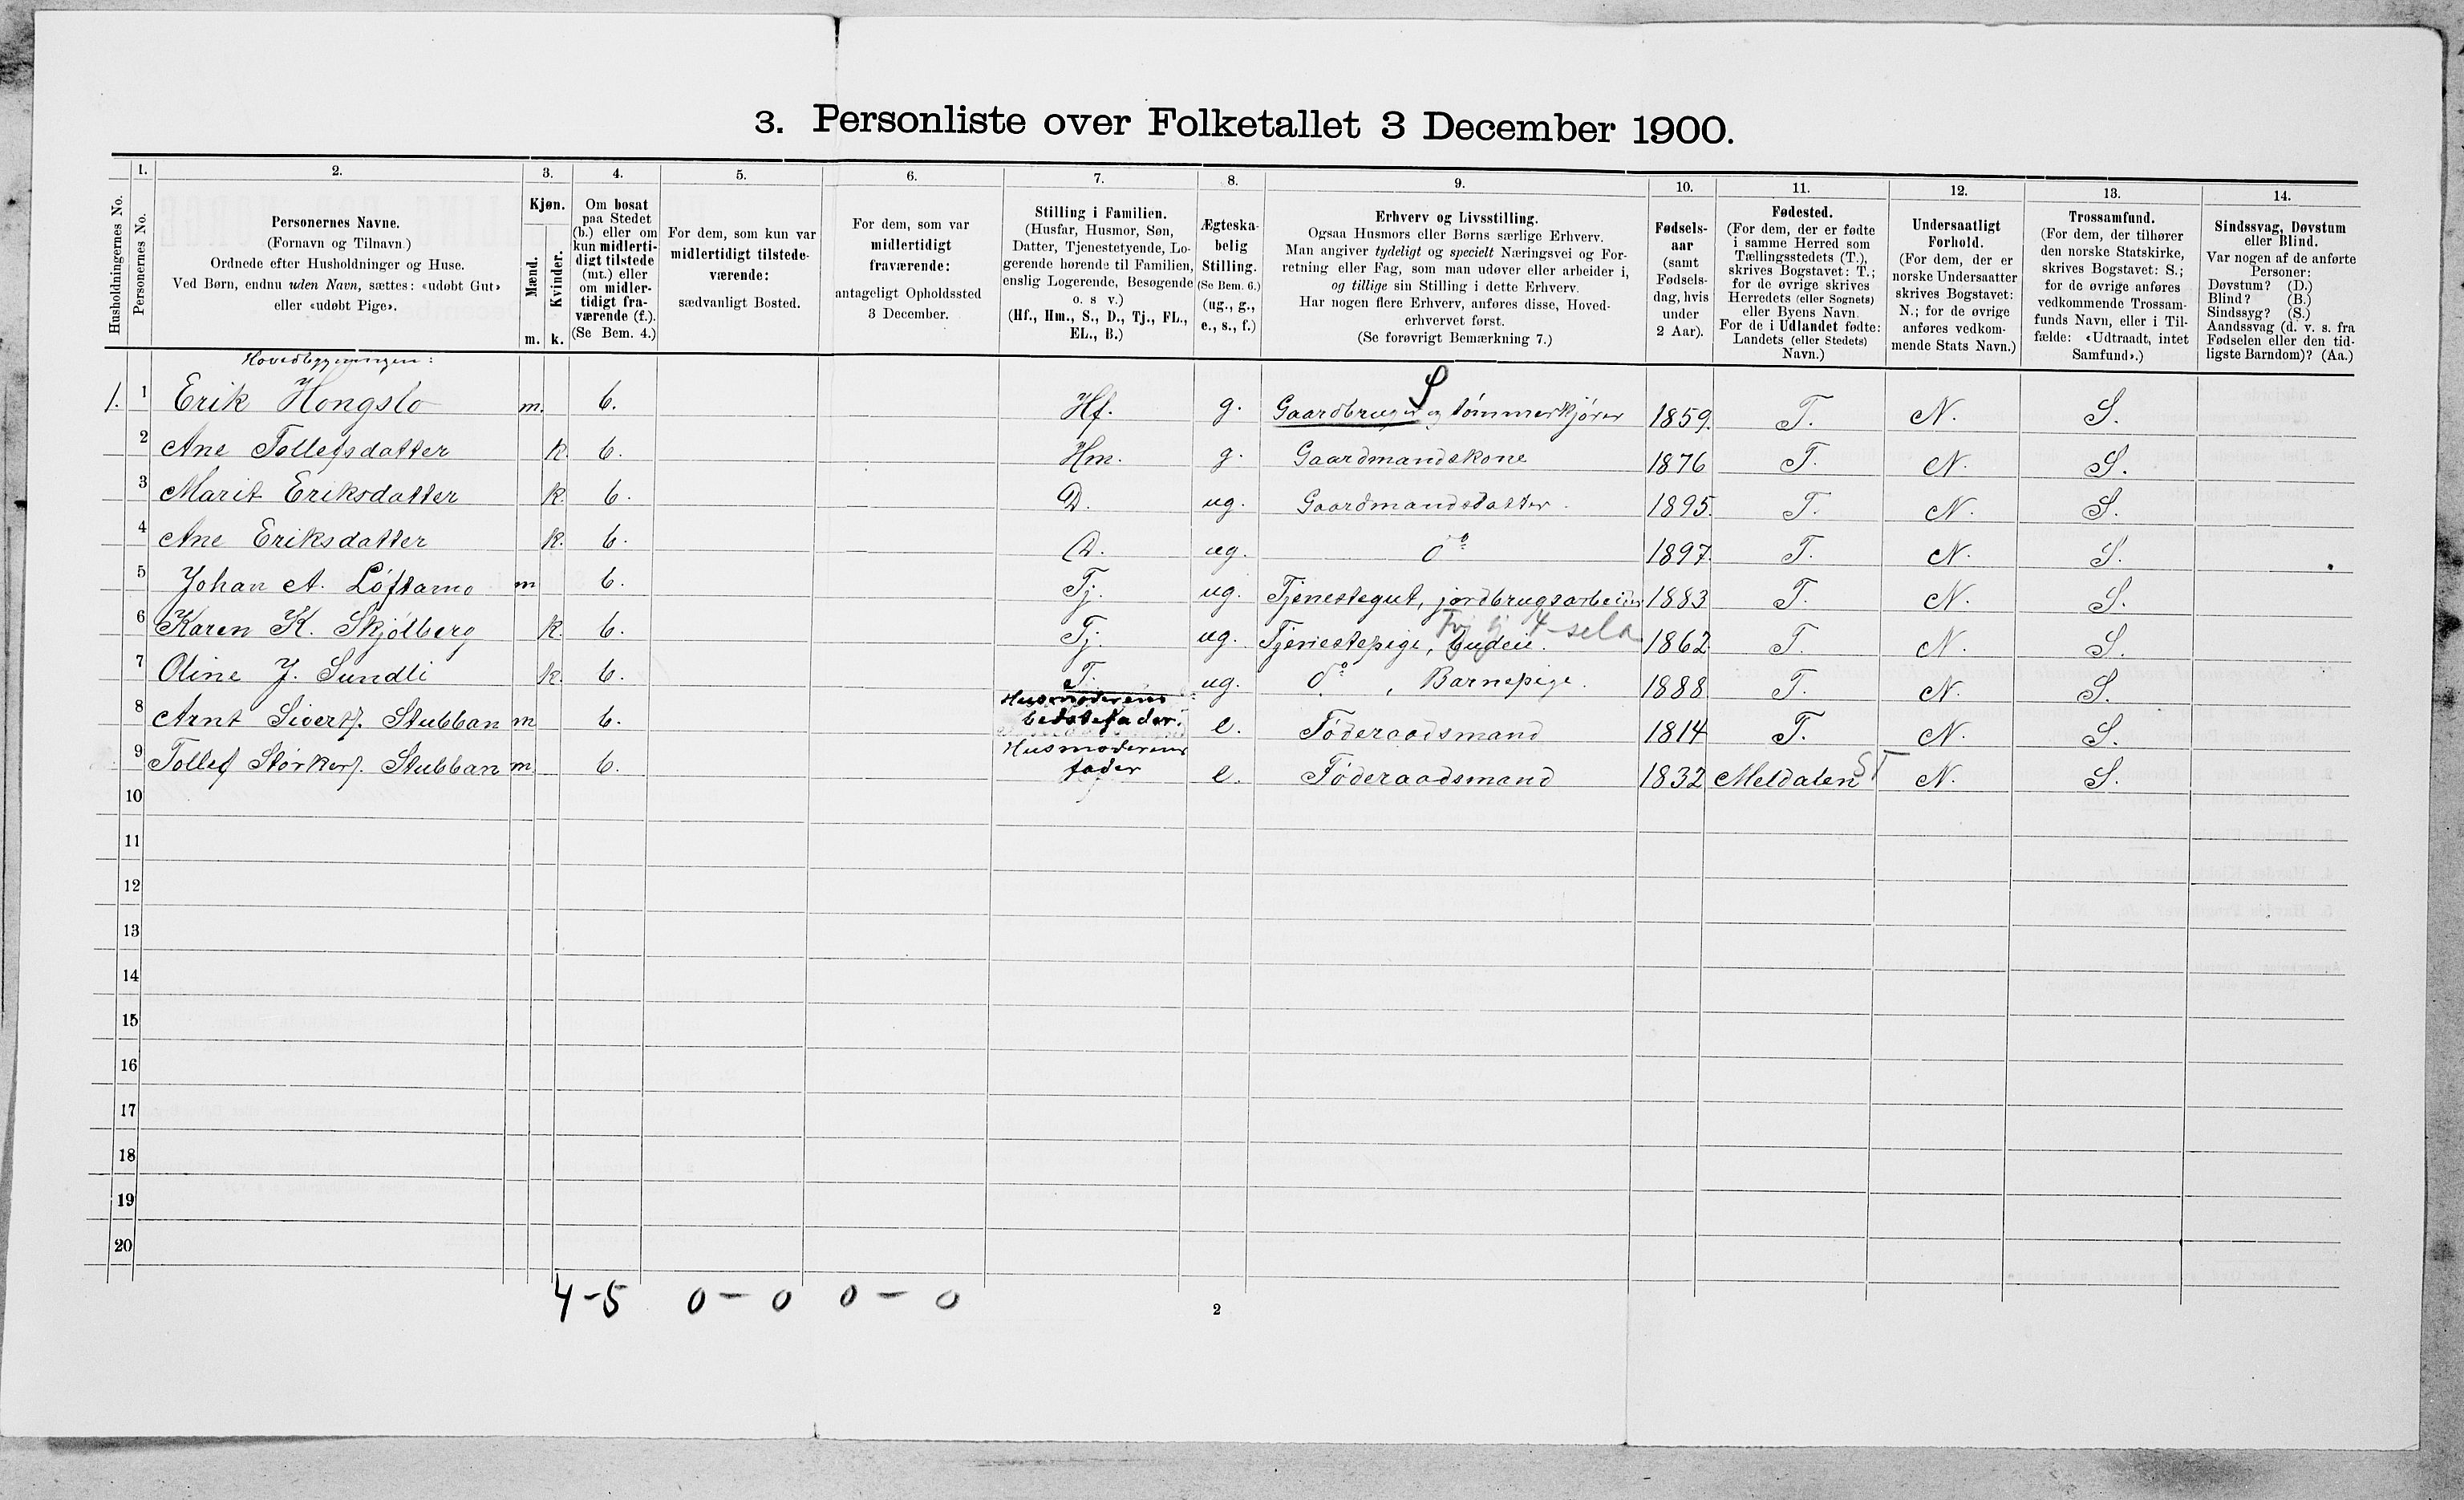 3. Personliste over Folketallet 3 December 1900.
Husholdningernes No.
1. Personernes No.
2. Personernes Navne.
(Fornavn og Tilnavn.)
Ordnede efter Husholdninger og Huse.
Ved Børn, endnu uden Navn, sættes: «udøbt Gut»
eller «udøbt Pige».
3. Kjøn.
Mænd. m.
Kvinder. k.
4. Om bosat
paa Stedet
(b.) eller om
kun midlerti-
digt tilstede
(mt.) eller
om midler-
tidigt fra-
værende (f.).
(Se Bem. 4.)
5. For dem, som kun var
midlertidigt tilstede-
værende:
sædvanligt Bosted.
6. For dem, som var
midlertidigt
fraværende:
antageligt Opholdssted
3 December.
7. Stilling i Familien.
(Husfar, Husmor, Søn,
Datter, Tjenestetyende, Lo-
gerende hørende til Familien,
enslig Logerende, Besøgende
o. s v.)
(Hf., Hm., S., D., Tj., FL.,
EL., B.)
8. Ægteska-
belig
Stilling.
(Se Bem. 6.)
(ug., g.,
e., s., f.)
9. Erhverv og Livsstilling.
Ogsaa Husmors eller Børns særlige Erhverv.
Man angiver tydeligt og specielt Næringsvei og For-
retning eller Fag, som man udøver eller arbeider i,
og tillige sin Stilling i dette Erhverv.
Har nogen flere Erhverv, anføres disse, Hoved-
erhvervet først.
(Se forøvrigt Bemærkning 7.)
10. Fødsels-
aar
(samt
Fødsels-
dag, hvis
under
2 Aar).
11. Fødested.
(For dem, der er fødte
i samme Herred som
Tællingsstedets (T.),
skrives Bogstavet: T.;
for de øvrige skrives
Herredets (eller Sognets)
eller Byens Navn.
For de i Udlandet fødte:
Landets (eller Stedets)
Navn.)
12. Undersaatligt
Forhold.
(For dem, der er
norske Undersaatter
skrives Bogstavet:
N.; for de øvrige
anføres vedkom-
mende Stats Navn.)
13. Trossamfund.
(For dem, der tilhører
den norske Statskirke,
skrives Bogstavet: S.;
for de øvrige anføres
vedkommende Trossam-
funds Navn, eller i Til-
fælde: «Udtraadt, intet
Samfund».)
14. Sindssvag, Døvstum
eller Blind.
Var nogen af de anførte
Personer:
Døvstum? (D.)
Blind? (B.)
Sindssyg? (S.)
Aandssvag (d. v. s. fra
Fødselen eller den tid-
ligste Barndom)? (Aa.)
Hovedbygningen:
S
1. 1 Erik Hongslo m. b. Hf. g. Gaardbruger og tømmerkjører 1859. T. N. S.
2 Ane Tollefsdatter k. b. Hm. g. Gaardmandskone 1876 T. N. S.
3 Marit Eriksdatter k. b. D. ug. Gaardmandsdatter. 1895. T. N. S.
4 Ane Eriksdatter k. b. D. ug. do 1897. T. N. S.
5 Johan A. Løftamo m b. Tj. ug. Tjenestegut, jordbrugsarbeider 1883 T. N. S.
6 Karen K. Skjølberg k. b. Tj. ug. Tjenestepige, Budeie. 1862 T. N. S.
7 Oline J. Sundli k. b. T. ug. do , Barnepige. 1888 T. N. S.
8 Arnt Siverts. Stubban m b. Husmoderens bedstefader. e. Føderaadsmand 1814 T. N. S.
9 Tollef Størkers. Stubban m b. Husmoderens fader e. Føderaadsmand 1832 Meldalen ST N. S.
10
11
12
13
14
15
16
17
18
19
20
4-5 0-0 0-0
2